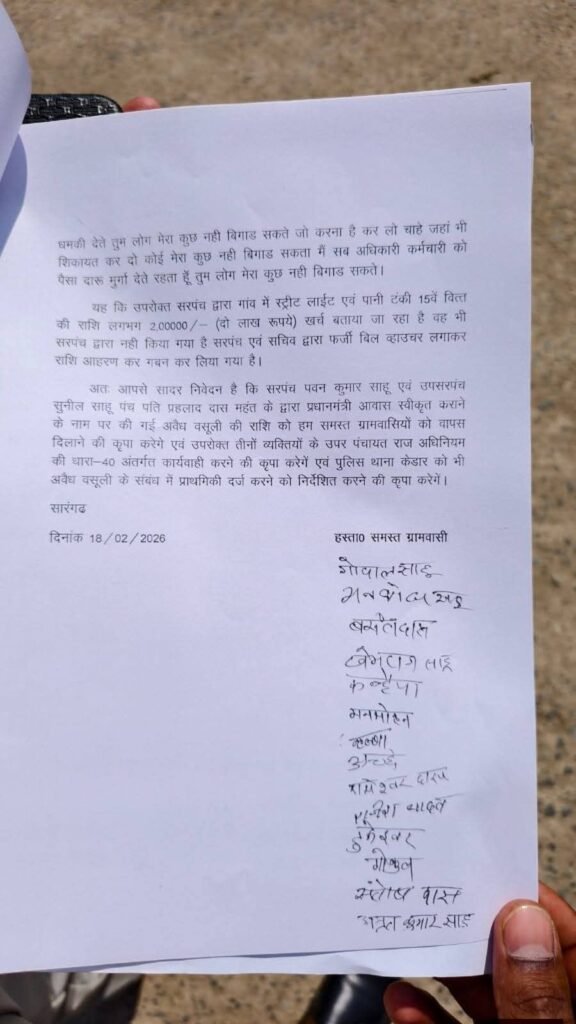 धमकी देते तुम लोग मेरा कुछ नही बिगाड सकते जो करना है कर लो चाहे जहां भी
शिकायत कर दो कोई मेरा कुछ नही बिगाड सकता मैं सब अधिकारी कर्मचारी को
पैसा दारू मुर्गा देते रहता हूँ तुम लोग मेरा कुछ नही बिगाड सकते।
यह कि उपरोक्त सरपंच द्वारा गांव में स्ट्रीट लाईट एवं पानी टंकी 15वें वित्त
की राशि लगभग 2,00000/- (दो लाख रूपये) खर्च बताया जा रहा है वह भी
सरपंच द्वारा नही किया गया है सरपंच एवं सचिव द्वारा फर्जी बिल व्हाउचर लगाकर
राशि आहरण कर गबन कर लिया गया है।
अतः आपसे सादर निवेदन है कि सरपंच पवन कुमार साहू एवं उपसरपंच
सुनील साहू पंच पति प्रहलाद दास महंत के द्वारा प्रधानमंत्री आवास स्वीकृत कराने
के नाम पर की गई अवैध वसूली की राशि को हम समस्त ग्रामवासियों को वापस
दिलाने की कृपा करेगे एवं उपरोक्त तीनों व्यक्तियों के उपर पंचायत राज अधिनियम
की धारा-40 अंतर्गत कार्यवाही करने की कृपा करेगें एवं पुलिस थाना केडार को भी
अवैध वसूली के संबंध में प्राथमिकी दर्ज करने को निर्देशित करने की कृपा करेगें।
सारंगढ
दिनांक 18/02/2026
हस्ता0 समस्त ग्रामवासी
गोपाल साहू
बसंत दास
खेमराज साहू
कन्हैया
मनमोहन
रामेश्वर दास
यादव
डुमेश्वर
गोकुल
संतोष दास
कुमार साहू